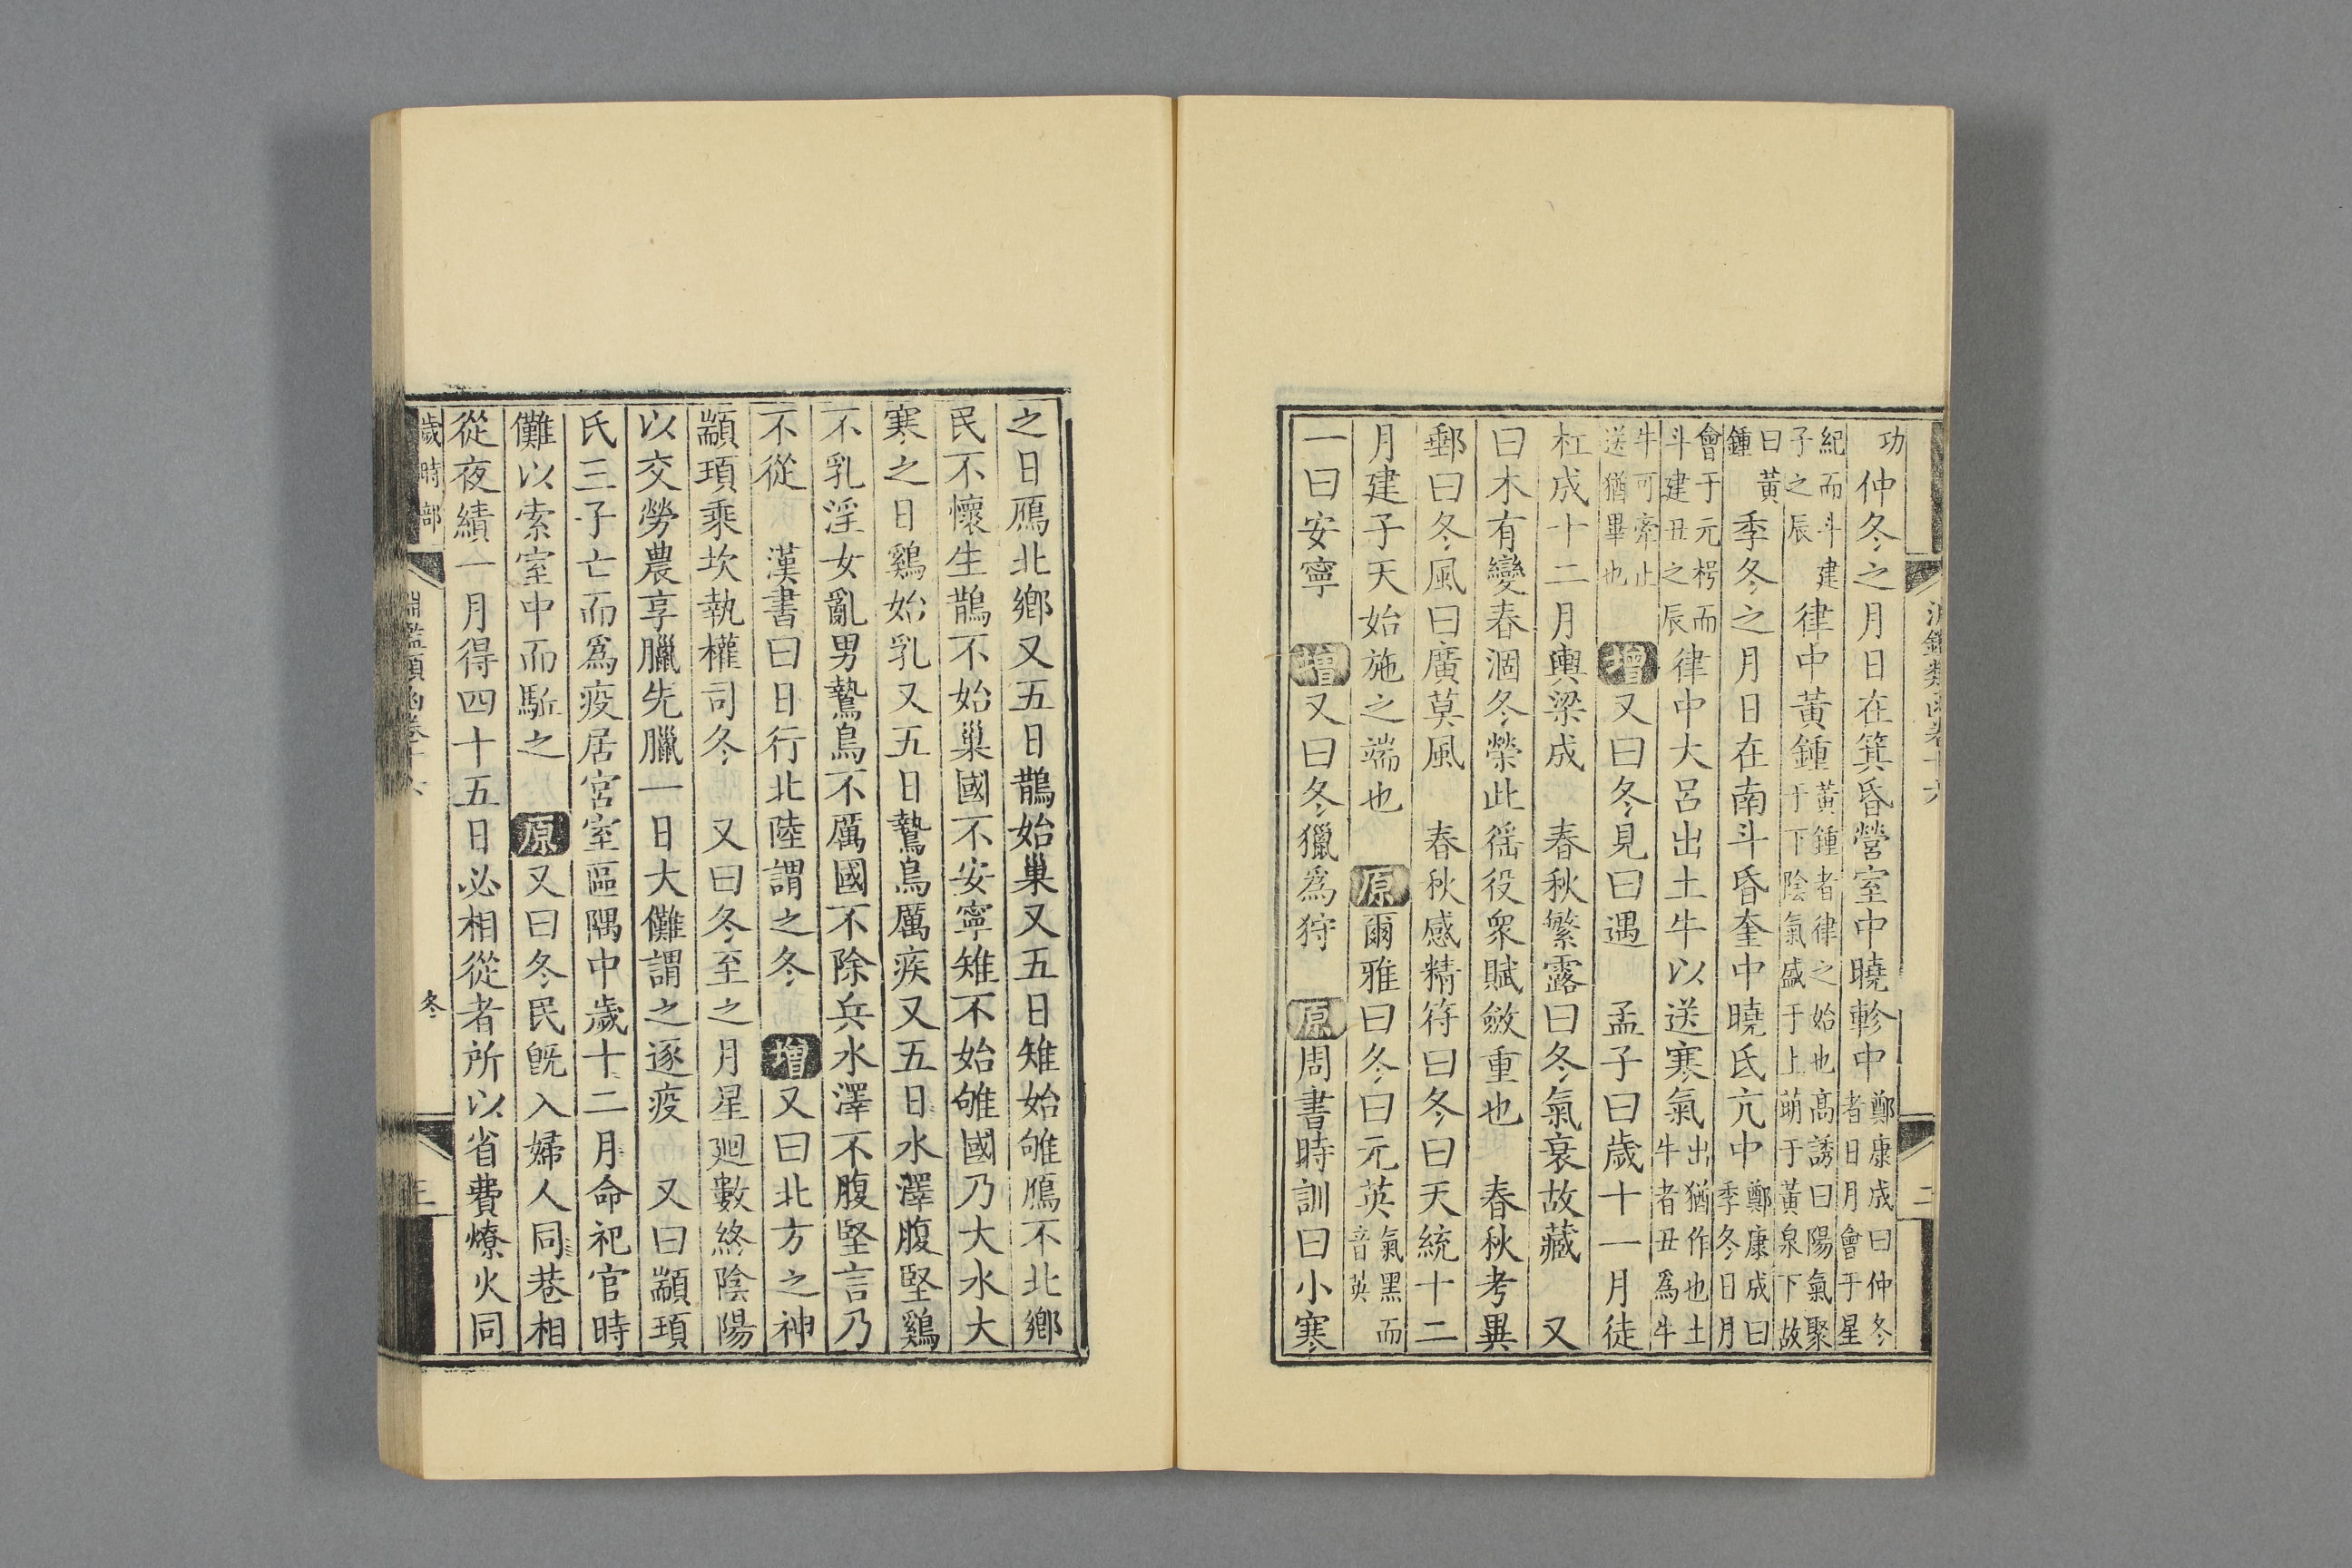 功仲冬之月日在箕昏營室中曉軫中鄭康成曰仲冬者日月會于星
紀而斗建子之辰律中黃鍾黃鍾者律之始也高誘曰陽氣聚于下陰氣盛于上萌于黃泉下故
曰黃鍾季冬之月日在南斗昏奎中曉氐亢中鄭康成曰季冬日月
會于元枵而斗建丑之辰律中大呂出土牛以送寒氣出猶作也土牛者丑爲牛
牛可牽止送猶畢也增又曰冬見曰遇 孟子曰歲十一月徒
杠成十二月輿梁成 春秋繁露曰冬氣衰故藏 又
曰木有變春凅冬榮此徭役衆賦斂重也 春秋考異
郵曰冬風曰廣莫風 春秋感精符曰冬曰天統十二
月建子天始施之端也 原爾雅曰冬曰元英氣黑而音英
一曰安寧 增又曰冬獵爲狩 原周書時訓曰小寒
之日鴈北鄉又五日鵲始巢又五日雉始雊鴈不北鄉
民不懷生鵲不始巢國不安寧雉不始雊國乃大水大
寒之日鷄始乳又五日鷙鳥厲疾又五日水澤腹堅鷄
不乳淫女亂男鷙鳥不厲國不除兵水澤不腹堅言乃
不從 漢書曰日行北陸謂之冬 增又曰北方之神
顓頊乘坎執權司冬 又曰冬至之月星廻數終陰陽
以交勞農享臘先臘一日大儺謂之逐疫 又曰顓頊
氏三子亡而爲疫居宮室區隅中歲十二月命祀官時
儺以索室中而毆之 原又曰冬民旣入婦人同巷相
從夜績一月得四十五日必相從者所以省費燎火同
歲時部 冬 三